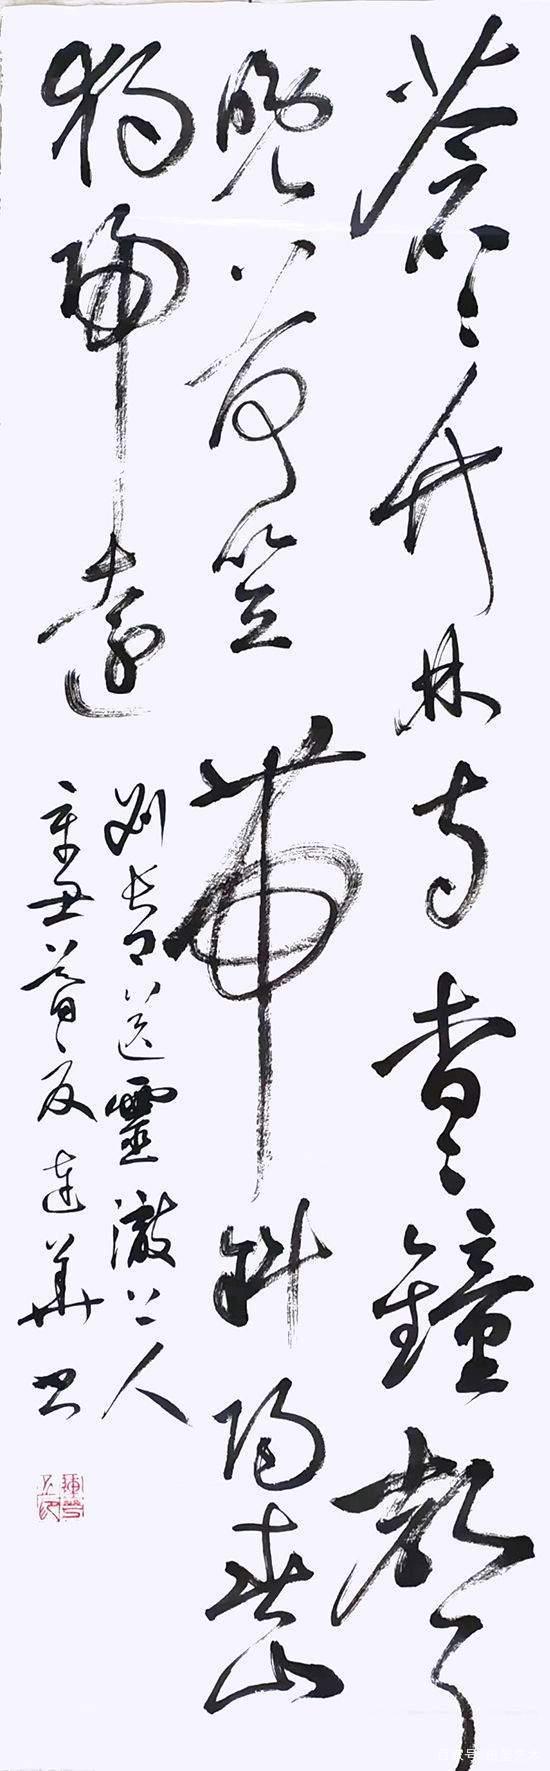 蒼々竹林寺杳々鐘聲
晚荷笠帶斜陽青山
獨歸遠
劉長卿送靈澈上人
辛丑首夏達華書